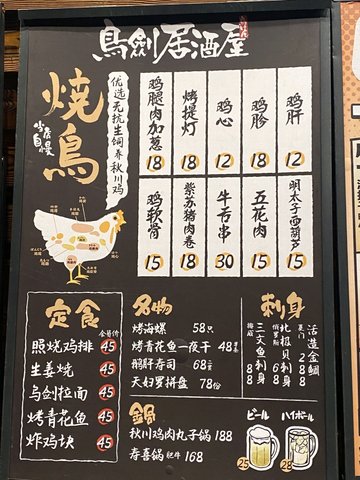 鳥劍居酒屋
焼鳥
当店自慢
优选无抗生饲养秋川鸡
鸡腿肉加葱 18
烤提灯 18
鸡心 12
鸡胗 18
鸡肝 12
鸡软骨 15
紫苏猪肉卷 18
牛舌串 30
五花肉 15
明太子西葫芦 15
定食
照烧鸡排 45
生姜烧 45
乌剑拉面 45
烤青花鱼 45
炸鸡块 45
名物
烤海螺 58
烤青花鱼一夜干 48
鹅肝寿司 68
天妇罗拼盘 78份
鍋
秋川鸡肉丸子锅 188
寿喜锅 肥牛 168
刺身
活造金鲷
北极贝刺身
三文鱼刺身
ビール 25
ハイボール 28